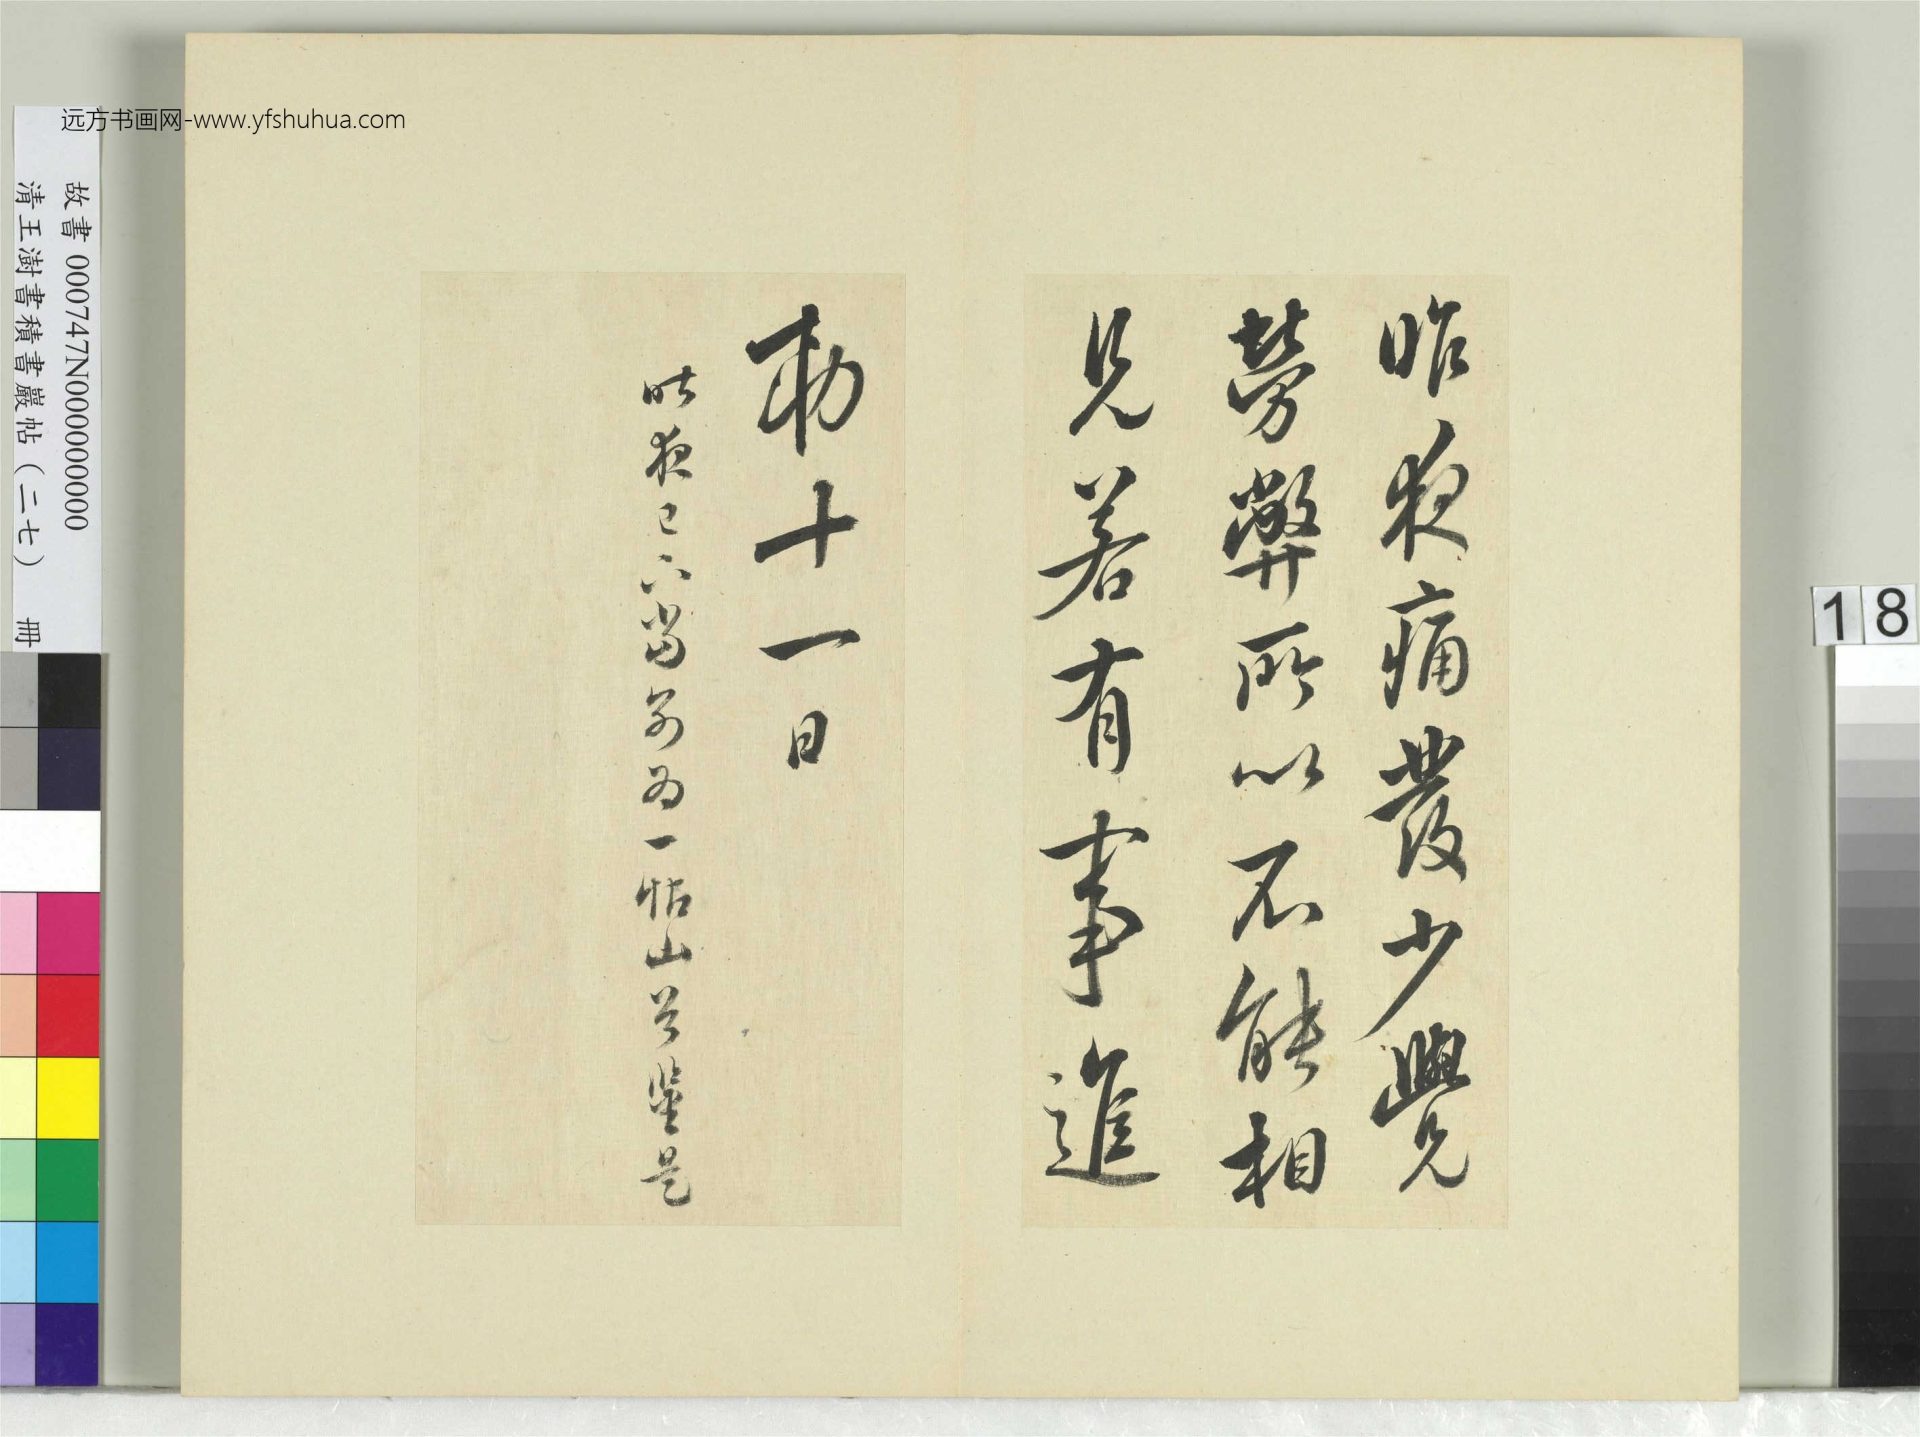 昨夜痛發少覺
勞弊所以不能相
見若有事進
勅十一日
昨夜已下當別為一帖山谷鑒是
远方书画网-www.yfshuhua.com
故書 000747N000000000
清王澍書積書巖帖(二七) 冊
18